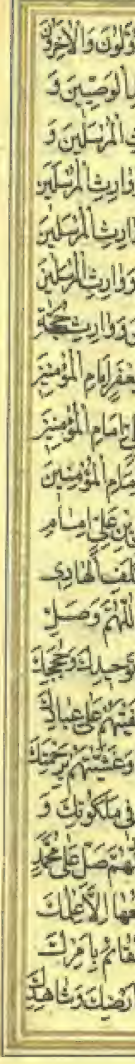 الأوّلون والآخرون
الوصيّين و
المرسلين و
ووارث المرسلين
وارث المرسلين
ووارث المرسلين
ووارث حجّة
جعفر إمام المؤمنين
إمام المؤمنين
إمام المؤمنين
بن عليّ إمام
الخلف الهادي
اللّهمّ وصلّ
توحيدك وحججك
على عبادك
وغشّيتهم برحمتك
في ملكوتك و
اللّهمّ صلّ على محمّد
إلّا علمك
القائم بأمرك
أرضك وشاهدك